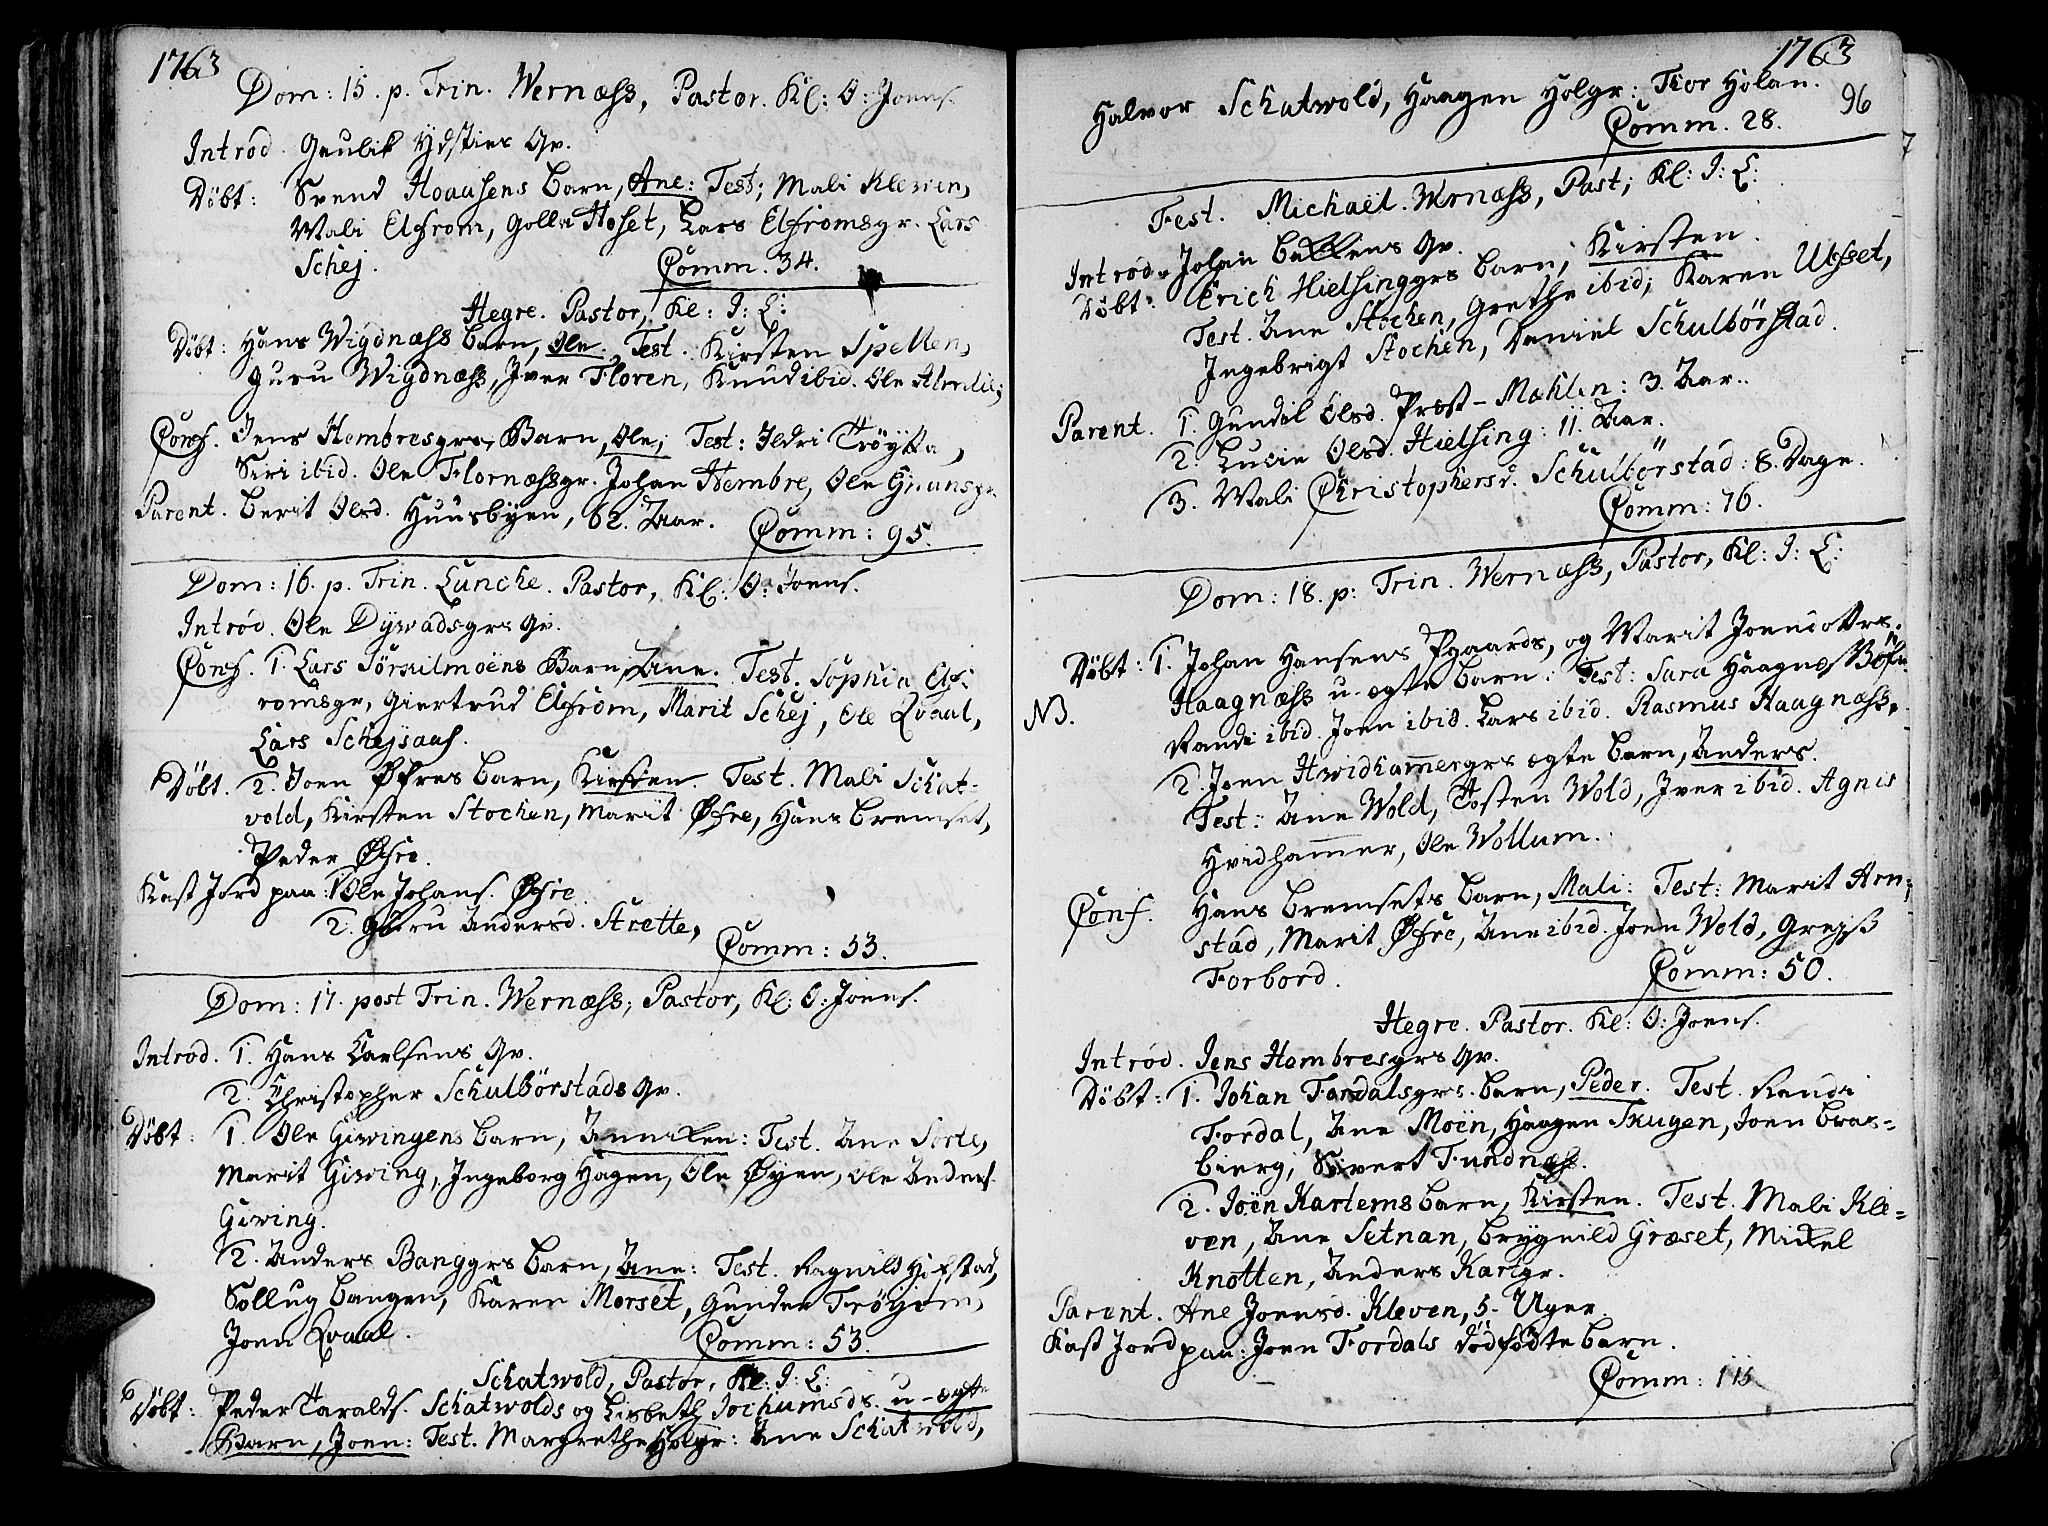 1763
Dom: 15. p. Trin. Wernæss, Pastor. Kl: O: Joens.
Introd. Gaulik Ydsties Qv.
Döbt: Svend Hoausens Barn, Ane: Test; Mali Kleven,
Mali Elfrom, Golla Hoset, Lars Elfromsgr. Lars
Schej. Comm. 34.
Hegre. Pastor, Kl: I: L:
Döbt: Hans Wigdnæss Barn, Ole. Test. Kirsten Spellen,
Guru Wigdnæss, Iver Floren, Knud ibid. Ole
Conf. Jens Hembresgrs. Barn, Ole; Test: Ildri Tröytta,
Siri ibid. Ole Flornæssgr. Johan Hembre, Ole
Parent. Berit Olsd. Huusbyen, 62. Aar. Comm: 95.
Dom: 16. p. Trin. Luncke. Pastor, Kl: O: Joens.
Introd. Ole Dywadsgrs Qv.
Conf. 1. Lars Sörmilmoëns Barn, Ane. Test. Sophia Elf-
romsgr, Giertrud Elfrom, Marit Schej, Ole Qvaal,
Lars Schejsaas.
Döbt. 2. Joen Øfres Barn, Kirsten. Test. Mali Schat-
vold, Kirsten Stochen, Marit Øfre, Hans Bremset,
Peder Øfre.
Kast Jord paa: 1. Ole Johans. Øfre
2. Guru Andersd. Strette,
Comm: 53.
Dom: 17. post Trin. Wernæss; Pastor, Kl: O: Joens.
Introd. 1. Hans Carlsens Qv.
2. Christopher Schulbörstads Qv.
Döbt: 1. Ole Giwingens Barn, Anniken: Test. Ane Sorte,
Marit Giwing, Ingeborg Hagen, Ole Øyen, Ole Anders.
Giwing.
2. Anders Banggrs Barn, Ane: Test. Ragnild Hofstad,
Sollug Bangen, Karen Morset, Gunder Tröyjom,
Joen Qvaal. Comm: 53.
Schatwold, Pastor, Kl: I: L:
Döbt: Peder Taralds. Schatwolds og Lisbeth Jochumsds. u-ægte
Barn, Joen: Test. Margrethe Holgr: Ane Schatwold,
1763
96
Halvor Schatwold, Haagen Holgr: Tor Holan.
Comm. 28.
Fest. Michaël. Wernæss, Past; Kl: I: L:
Introd. Johan Ballens Qv.
Döbt: Erich Hielsinggrs Barn, Kirsten.
Test. Ane Stochen, Grethe ibid; Karen Ulsset,
Ingebrigt Stochen, Daniel Schulbörstad.
Parent. 1. Gundel Olsd. Præst-Mæhlen: 3. Aar.
2. Lucie Olsd. Hielsing: 11. Aar.
3. Mali Christophersd. Schulbörstad: 8. Dage.
Comm: 76.
Dom: 18. p: Trin. Wernæss, Pastor, Kl: I: L:
Döbt: 1. Johan Hansens Pgaards, og Marit Joensdattrs.
NB. Haagnæss u-ægte Barn: Test: Sara Haagnæss
Randi ibid. Joen ibid. Lars ibid. Rasmus Haagnæss.
2. Joen Hwidhamergrs ægte Barn, Anders.
Test: Ane Wold, Tosten Wold, Iver ibid. Agnis
Hvidhammer, Ole Wollum.
Conf. Hans Bremsets Barn, Mali: Test: Marit Arn-
stad, Marit Øfre, Ane ibid. Joen Wold, Gregß
Forbord. Comm: 50.
Hegre. Pastor. Kl: O: Joens.
Introd. Jens Hembresgrs Qv.
Döbt: 1. Johan Fordalsgrs. Barn, Peder. Test. Randi
Fordal, Ane Moën, Haagen Skugen, Joen Bras-
bierg, Sivert Fundnæss.
2. Joën Karlems Barn, Kirsten. Test. Mali Kle-
ven, Ane Setnan, Brygnild Græset, Mikel
Knotten, Anders Karlgr.
Parent. Ane Joensd. Kleven, 5. Uger.
Kast Jord paa: Joen Fordals dödfödte Barn.
Comm: 115